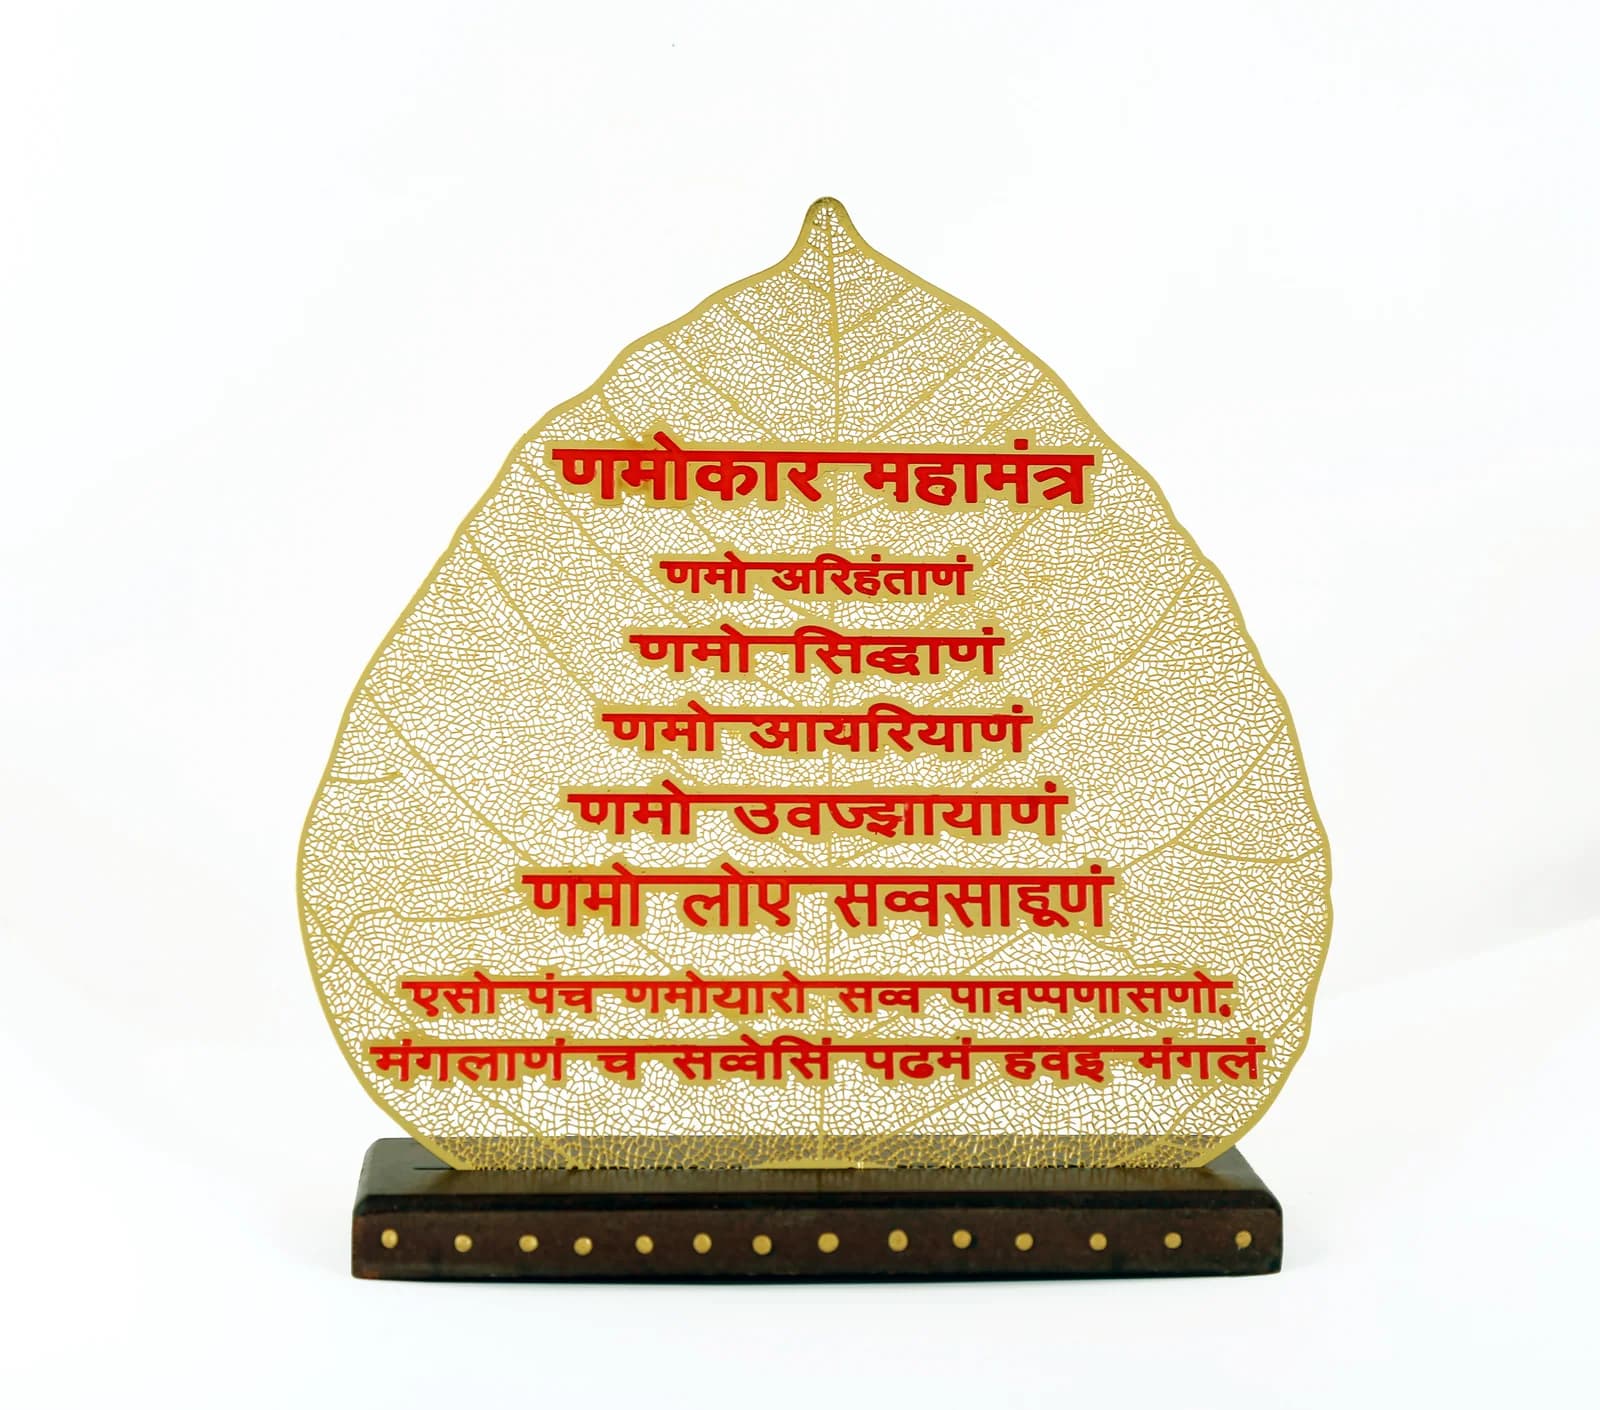 णमोकार महामंत्र
णमो अरिहंताणं
णमो सिद्धाणं
णमो आयरियाणं
णमो उवज्झायाणं
णमो लोए सव्वसाहूणं
एसो पंच णमोयारो सव्व पावप्पणासणो.
मंगलाणं च सव्वेसिं पढमं हवइ मंगलं